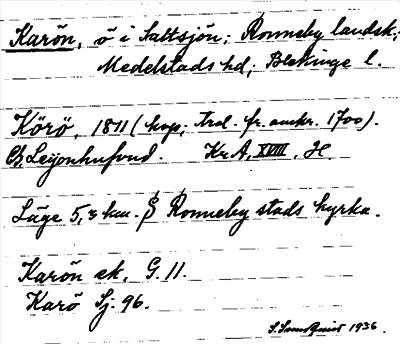 Karön, ö i Saltsjön; Ronneby landsk;
Medelstads hd; Blekinge l.
Körö, 1811 (kop; trol. fr. omkr. 1700).
Leijonhufvud. Kr. A, XVIII, H.
Läge 5,3 km. S Ronneby stads kyrka.
Karön ek. G. 11.
Karö Sj. 96.
1936.